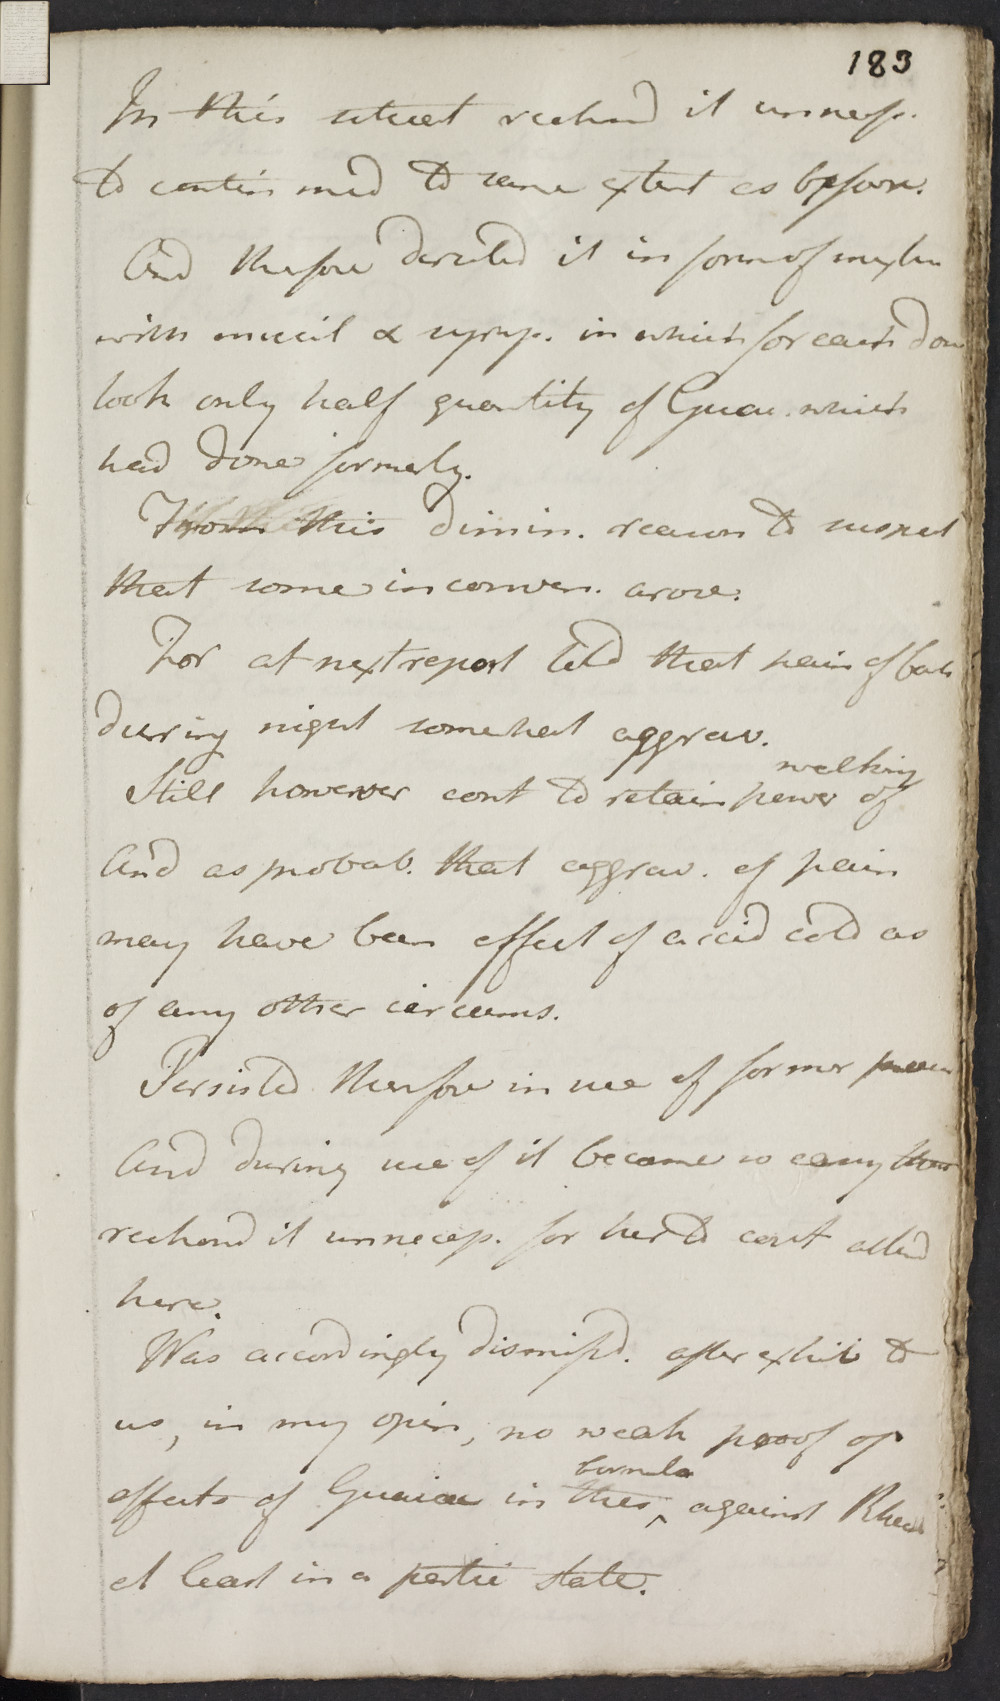 183
In this situat reckond it unness.
to contin med to same extent as before.
And therfore directed it in form of mixtur
with mucil & syrup. in which for each dose
took only half quantity of Guai. which
had done formerly.
From this dimin. reason to suspect
that some inconven. arose.
For at next report told that pain of back
during night somewhat aggrav.
walking
Still however cont to retain power of
And as probab. that aggrav. of pain
may have been effect of accid cold as
of any other circums.
Persisted therfore in use of former
And during use of it became so easy that
reckond it unness. for her to cont attend
here.
Was accordingly dismissd. after exhib to
us, in my opin, no weak proof of
formula
effects of Guaiac in this ^ against Rheum
at least in a partic state.